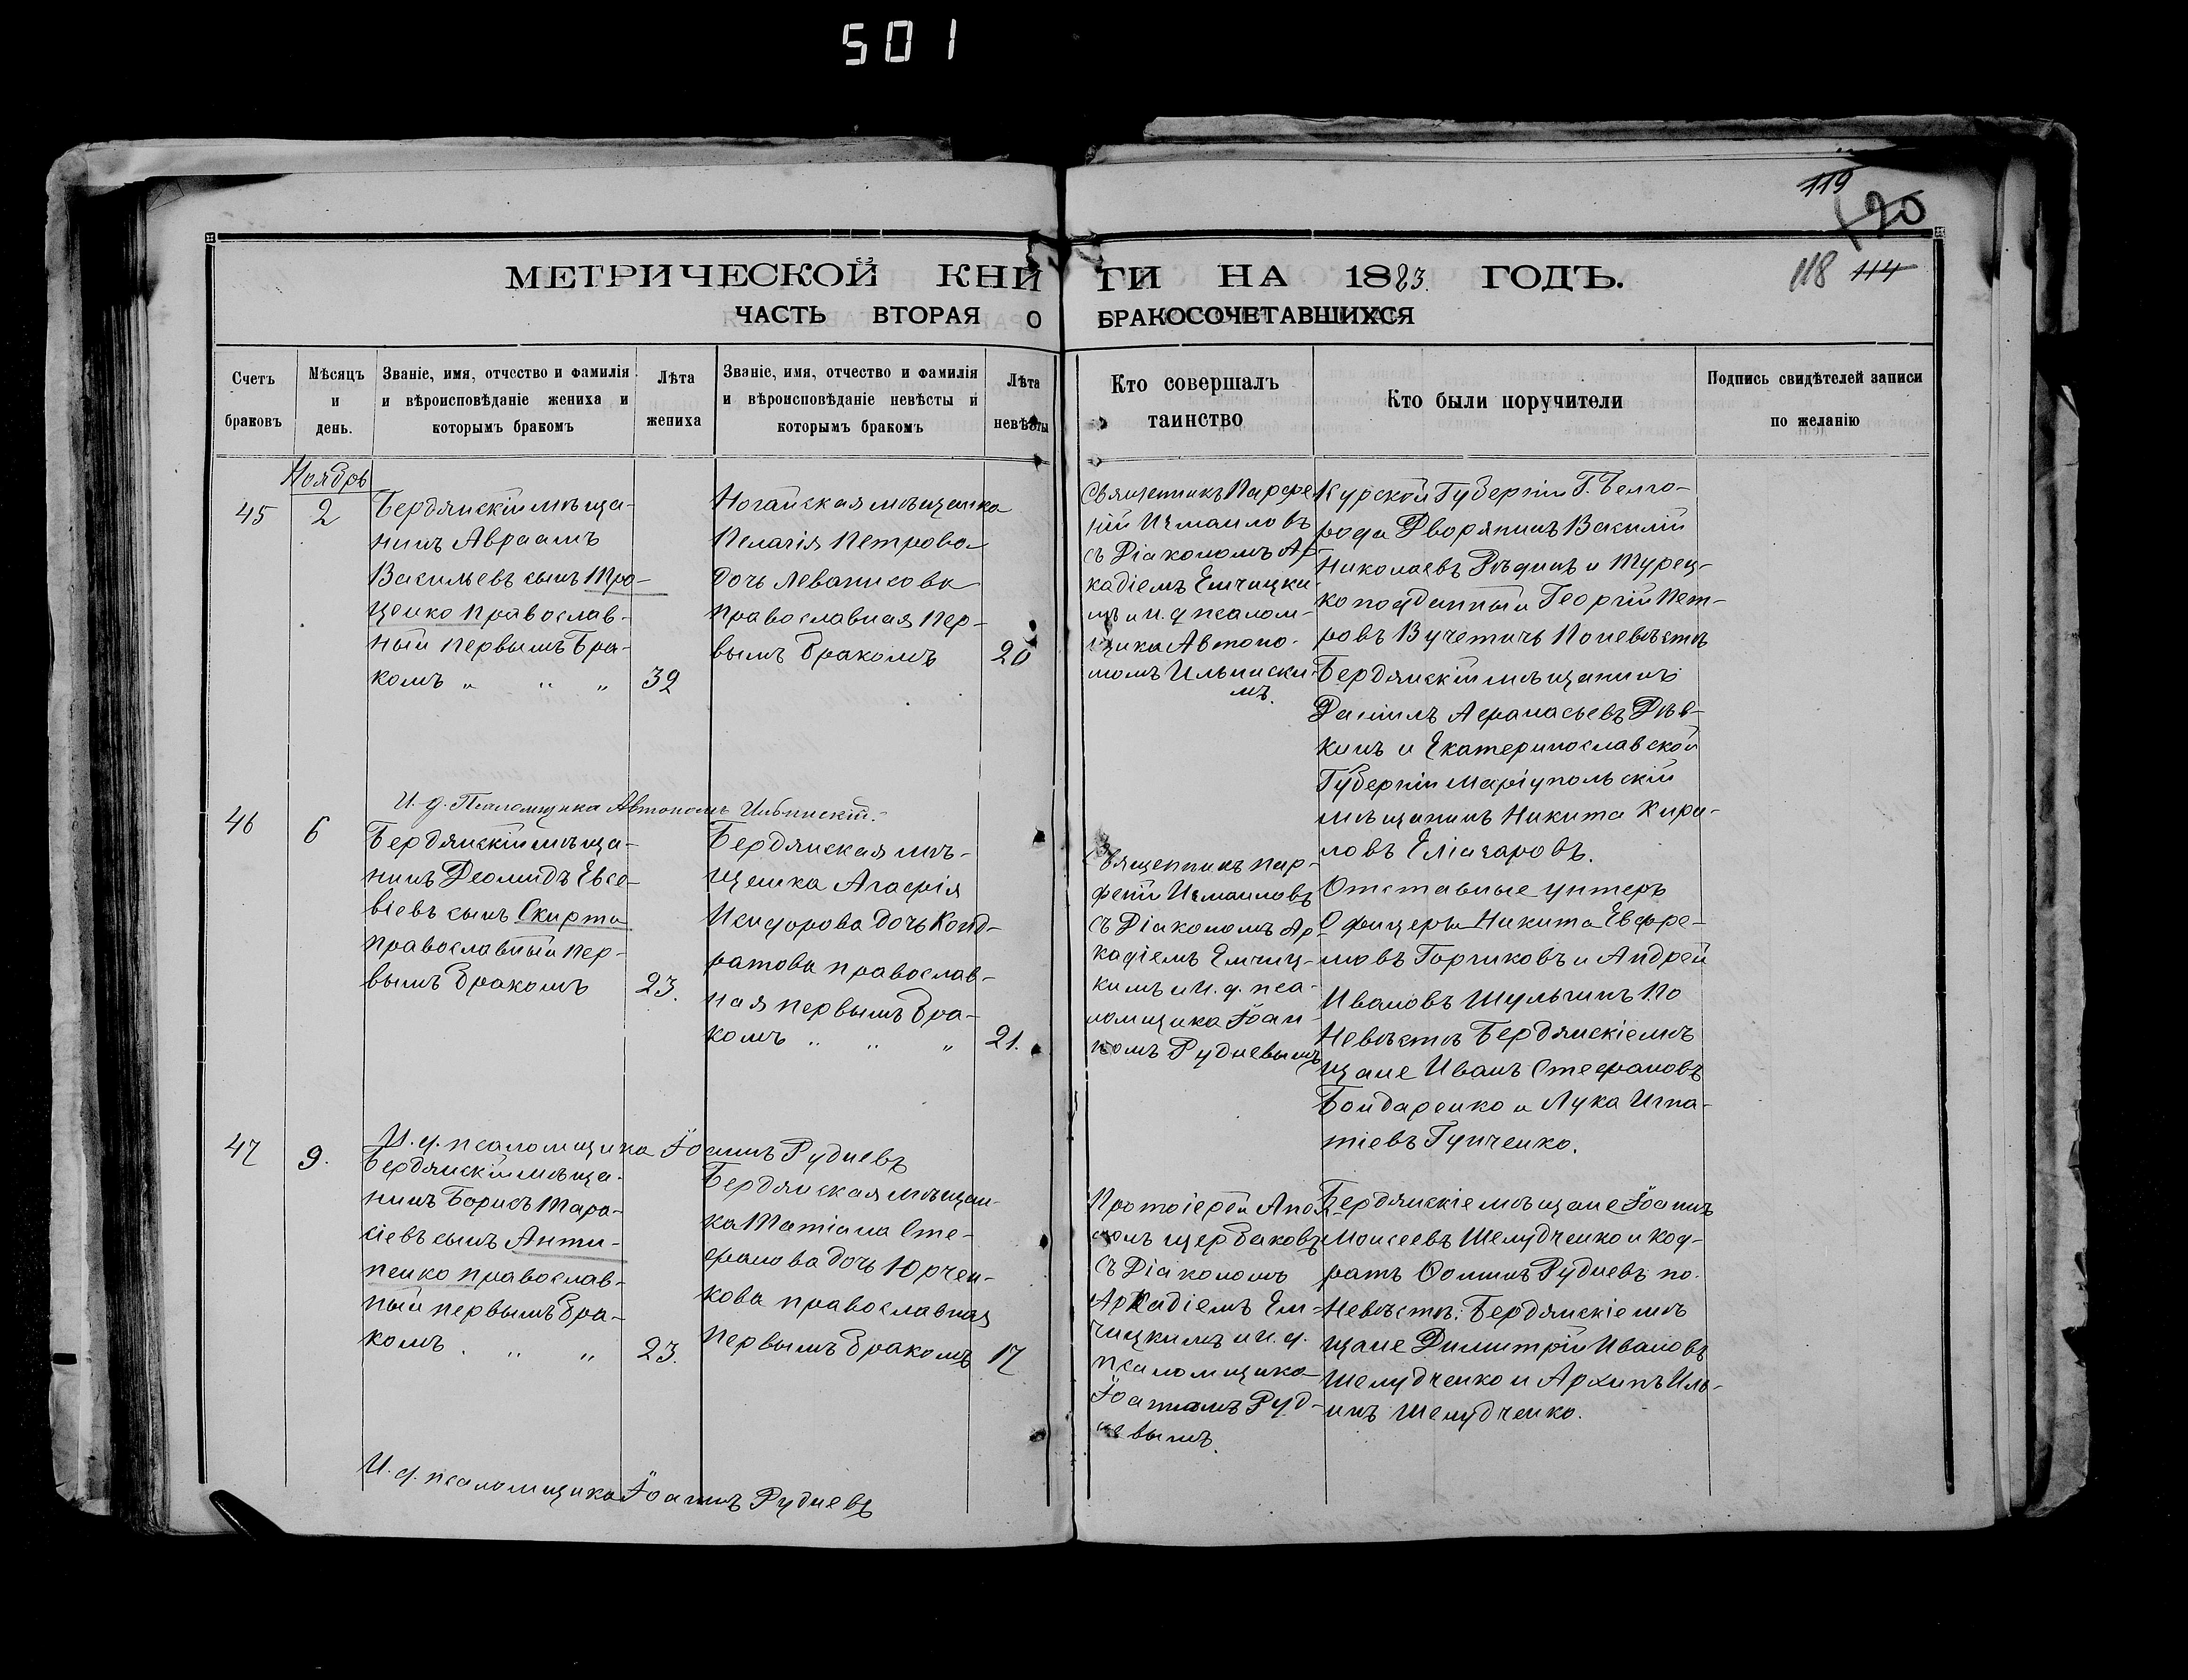 501
119
120
МЕТРИЧЕСКОЙ КНИ ГИ НА 1883 ГОДЪ.
118 114
ЧАСТЬ ВТОРАЯ О БРАКОСОЧЕТАВШИХСЯ
Счетъ браковъ
Мѣсяцъ и день.
Званіе, имя, отчество и фамилія и вѣроисповѣданіе жениха и которымъ бракомъ
Лѣта жениха
Званіе, имя, отчество и фамилія и вѣроисповѣданіе невѣсты и которымъ бракомъ
Лѣта невѣсты
Кто совершалъ таинство
Кто были поручители
Подпись свидѣтелей записи по желанію
Ноябрь
45
2
Бердянскій мѣща-
нинъ Авраамъ
Васильевъ сынъ Тро-
ценко Православ-
ный первымъ Бра-
комъ „ „ „
32
Ногайская мѣщанка
Пелагія Петрова
дочь Леванисова
Православная Пер-
вымъ Бракомъ
20
Священникъ Парфе
ній Измаиловъ
съ Діакономъ Ар-
кадіемъ Емчицки
мъ и И. д псалом-
щика Автоно-
момъ Ильински
мъ.
Курской Губерніи Г. Белго-
рода Дворянинъ Василій
Николаевъ Рѣдинъ и Турец-
ко подданный Георгій Пет-
ровъ Вучетичь По невѣстѣ
Бердянскій мѣщанинъ
Даніилъ Афанасьевъ Рѣв-
кинъ и Екатеринославской
Губерніи Маріупольскій
мѣщанинъ Никита Кири-
ловъ Еліазаровъ.
И. д. Псаломщика Автономъ Ильинскій.
46
6
Бердянскій мѣща-
нинъ Деомидъ Евсе-
віевъ сынъ Скирта
православный пер-
вымъ бракомъ
23.
Бердянская мѣ-
щанка Агафія
Исидорова дочь Конд-
ратова православ-
ная первымъ бра-
комъ „ „ „
21.
Священникъ Пар-
феній Измаиловъ
съ Діакономъ Ар-
кадіемъ Емчиц-
кимъ и И. д. пса-
ломщика Іоан
номъ Рудневымъ
Отставные унтеръ
Офицеры Никита Евфре-
мовъ Горчиковъ и Андрей
Ивановъ Шульгинъ По
Невѣстѣ Бердянскіе мѣ
щане Иванъ Стефановъ
Бондаренко и Лука Игна-
тіевъ Гунченко.
И. д. псаломщика Іоаннъ Рудневъ
47
9.
Бердянскій мѣща-
нинъ Борисъ Тара-
сіевъ сынъ Анти-
пенко православ-
ный первымъ бра-
комъ . „ „
23.
Бердянская мѣщан-
ка Татіана Сте-
фанова дочь Юрчен-
кова православная
первымъ бракомъ
17
Протоіерей Апол-
лонъ Щербаковъ
съ Діакономъ
Аркадіемъ Ем-
чицкимъ и И. д.
псаломщика
Іоанномъ Руд-
невымъ.
Бердянскіе мѣщане Іоаннъ
Моисеевъ Шелудченко и Код-
ратъ Фоминъ Рудневъ по.
Невѣстѣ: Бердянскіе мѣ
щане Димитрій Ивановъ
Шелудченко и Архипъ Иль-
инъ Шелудченко.
И. д. псаломщика Іоаннъ Рудневъ